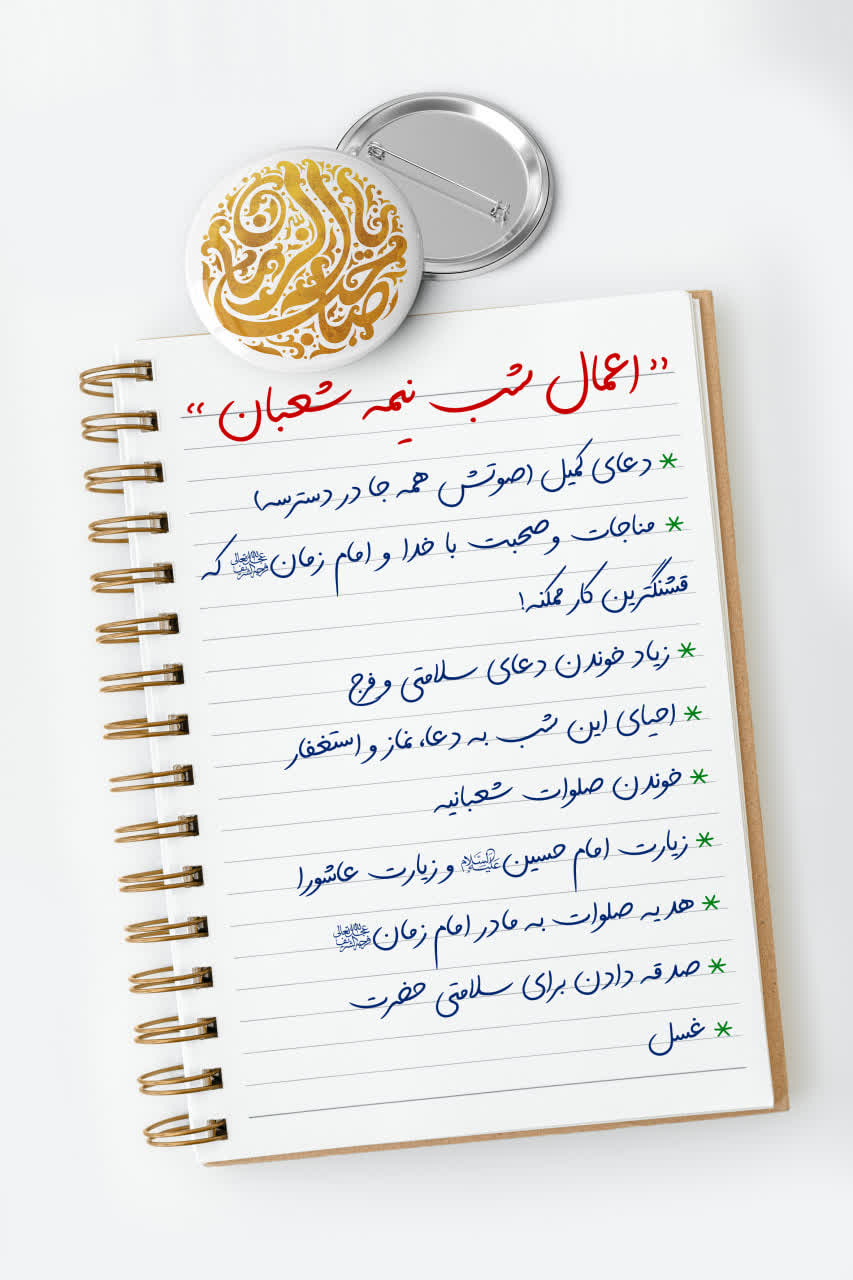 یا صاحب الزمان
" اعمال شب نیمه شعبان "
* دعای کمیل (صوتش همه جا در دسترسه)
* مناجات و صحبت با خدا و امام زمان عجل الله تعالی فرجه الشریف که
قشنگترین کار ممکنه!
* زیاد خوندن دعای سلامتی و فرج
* احیای این شب به دعا، نماز و استغفار
* خوندن صلوات شعبانیه
* زیارت امام حسین علیه السلام و زیارت عاشورا
* هدیه صلوات به مادر امام زمان عجل الله تعالی فرجه الشریف
* صدقه دادن برای سلامتی حضرت
* غسل